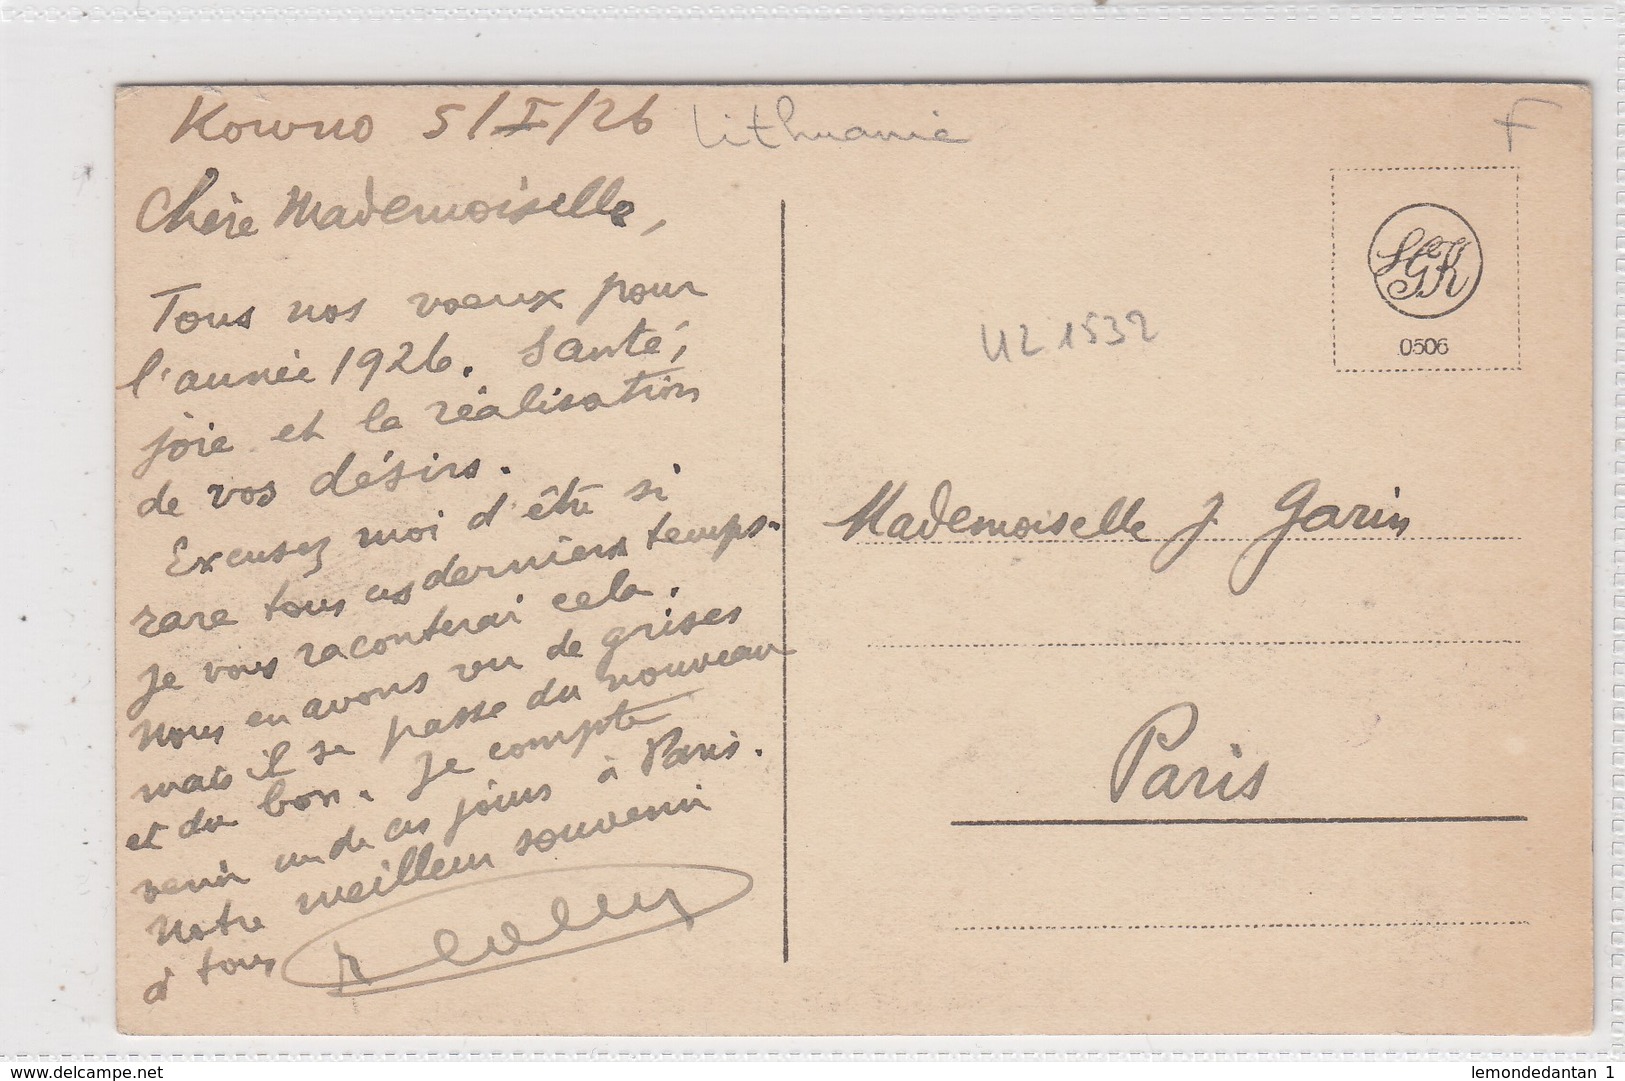 Kowno 5/I/26
Lithuanie
F
Chère Mademoiselle,
Tous nos voeux pour
l'année 1926. Santé,
joie et la réalisation
de vos désirs.
Excusez moi d'être si
rare tous ces derniers temps.
Je vous raconterai cela.
Nous en avons vu de grises
mais il se passe du nouveau
et du bon. Je compte
venir un de ces jours à Paris.
Notre meilleur souvenir
à tous
SGK
0506
UZ 1532
Mademoiselle J. Garin
Paris
delcampe.net
lemondedantan 1